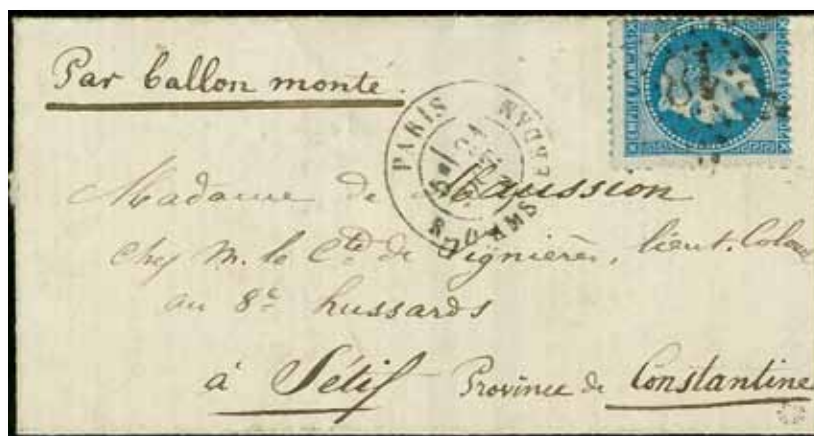 Par ballon monté.
EMPIRE FRANÇAIS
PARIS
R. D'AMSTERDAM
Madame de Maussion
chez M. le Cte de Vignières, lieut. Colonel
au 8e hussards
à Sétif Province de Constantine